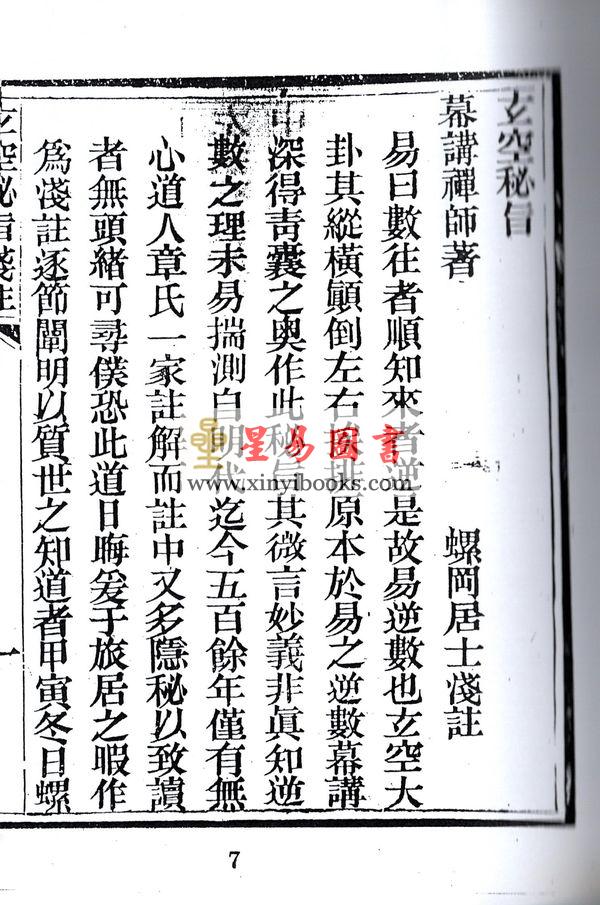 玄空秘旨
幕講禪師著 螺岡居士淺註
易曰數往者順知來者逆是故易逆數也玄空大
卦其縱橫顚倒左右挨排原本於易之逆數幕講
深得靑囊之奧作此秘旨其微言妙義非眞知逆
數之理未易揣測自明代迄今五百餘年僅有無
心道人章氏一家註解而註中又多隱秘以致讀
者無頭緒可尋僕恐此道日晦爰于旅居之暇作
爲淺註逐節闡明以質世之知道者甲寅冬日螺
玄空秘旨淺註
一
7
星易圖書
www.xinyibooks.com